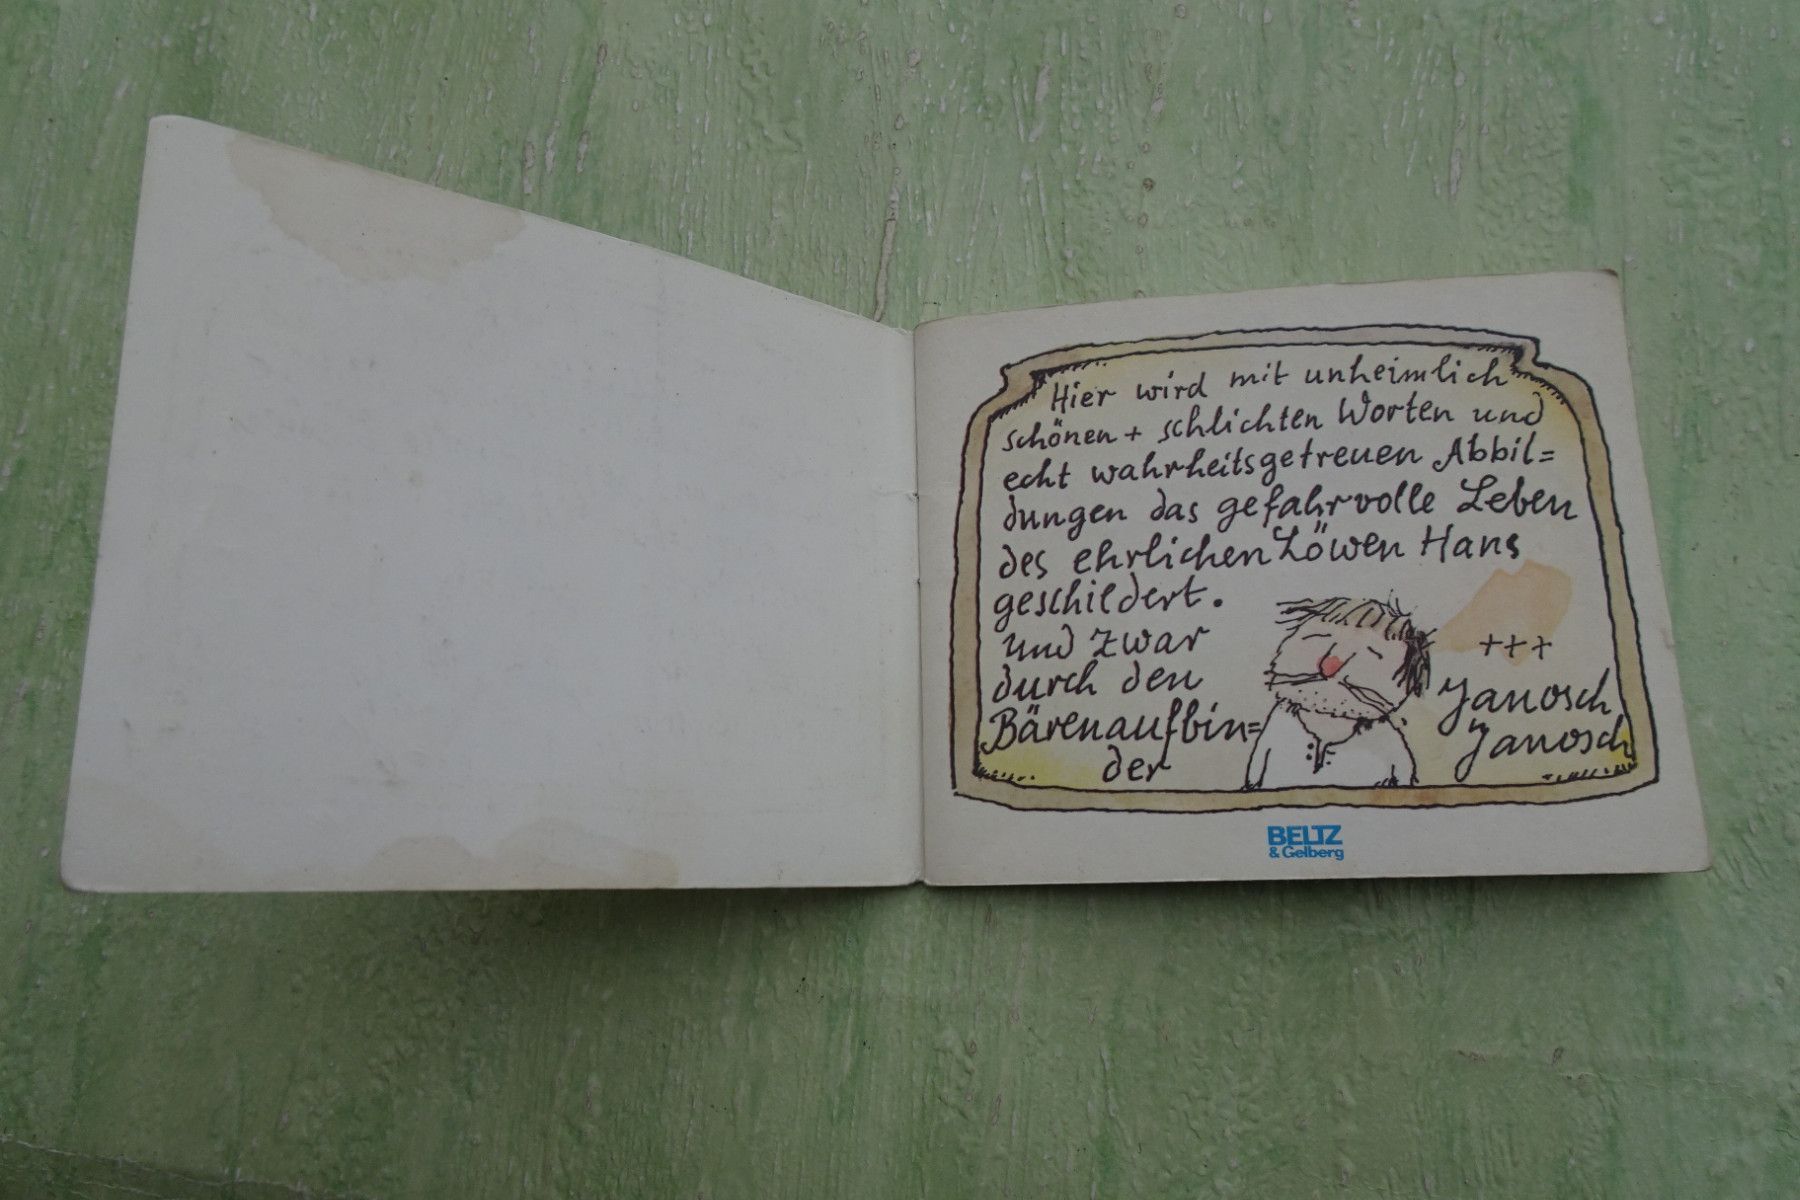 Hier wird mit unheimlich
schönen + schlichten Worten und
echt wahrheitsgetreuen Abbil=
dungen das gefahrvolle Leben
des ehrlichen Löwen Hans
geschildert.
und zwar
durch den
Bärenaufbin=
der
+++
Janosch
Janosch
BELTZ
& Gelberg